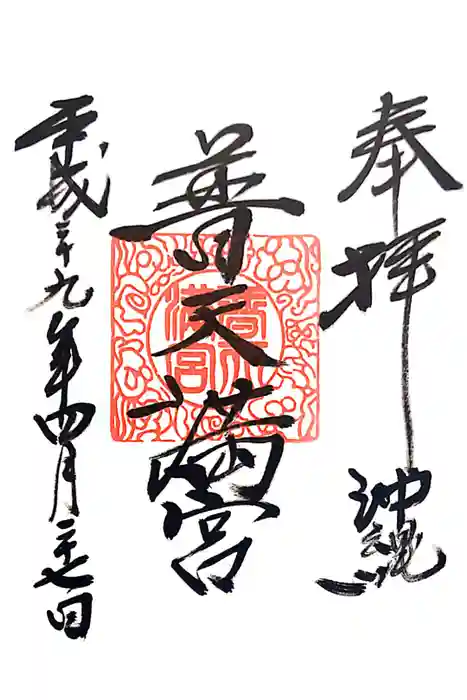 奉拝 沖縄
普天満宮
普天満宮
平成二十九年四月二十七日